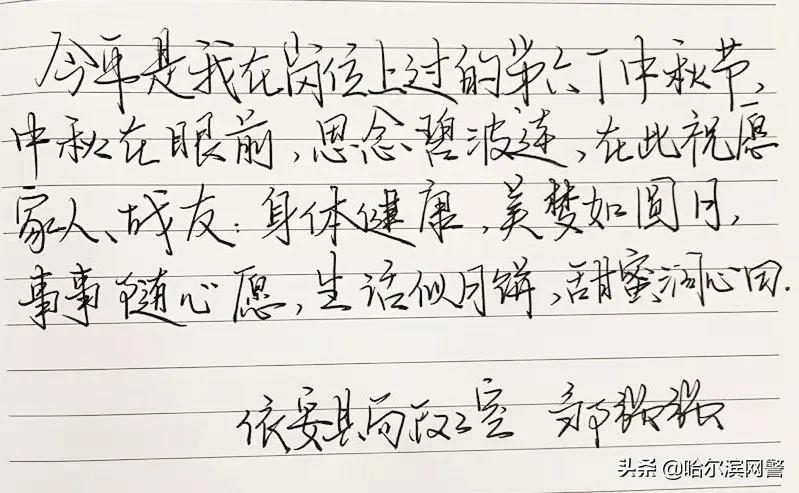 今年是我在岗位上过的第六个中秋节,
中秋在眼前,思念碧波连,在此祝愿
家人、战友:身体健康,美梦如圆月,
事事随心愿,生活似月饼,甜蜜润心田.
依安县局政工室 郭强强
头条 @哈尔滨网警